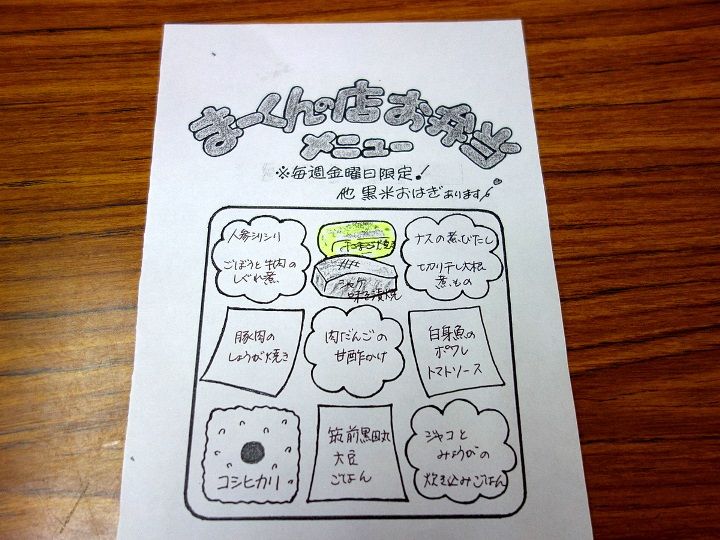 まーくんの店お弁当
メニュー
※毎週金曜日限定!
他黒米おはぎあります!
人参シリシリ
ごぼうと牛肉の
しぐれ煮
たまご焼き
シャケ
味噌漬焼
ナスの煮びたし
切り干し大根
煮もの
豚肉の
しょうが焼き
肉だんごの
甘酢かけ
白身魚の
ポワレ
トマトソース
コシヒカリ
筑前黒田丸
大豆
ごはん
ジャコと
みょうがの
炊き込みごはん